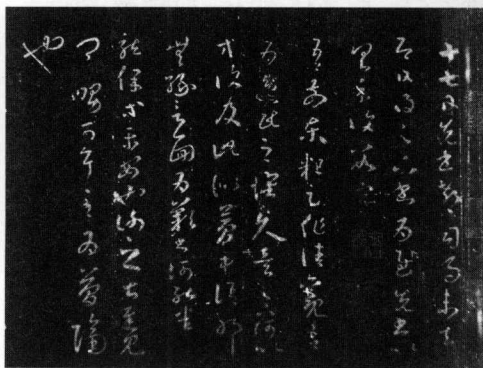 十七日先書郗司馬未去
即日得足下書為慰先書以
具示復數字
吾前東粗足作佳觀吾
為逸民之懷久矣足下何以
等復及此似夢中語耶
無緣言面為歎書何能悉
龍保等平安也謝之甚遲見
卿舅可耳至為簡隔
也